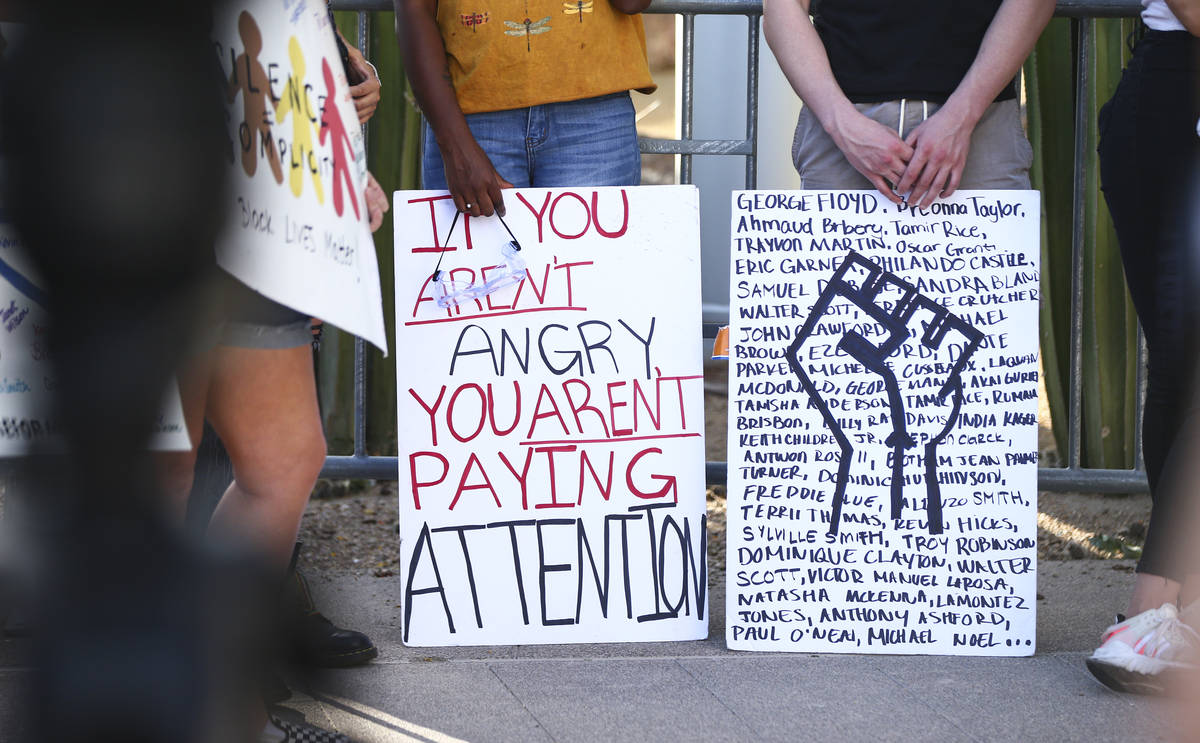 SILENCE
COMPLICITY
Black LIVES Matter!
IF YOU
AREN'T
ANGRY,
YOU AREN'T
PAYING
ATTENTION
GEORGE FLOYD, Breonna Taylor,
Ahmaud Arbery, Tamir Rice,
TRAYVON MARTIN, Oscar Grant,
ERIC GARNER, PHILANDO CASTILE,
SAMUEL SANDRA BLAND
WALTER SCOTT, CRUTCHER
JOHN CRAWFORD MICHAEL
BROWN, FORD, DANTE
PARKER, MICHELLE CUSSEAUX, LAQUAN
MCDONALD, GEORGE MANN, AKAI GURLEY
TANISHA ANDERSON, TAMIR RICE, RUMAIN
BRISBON, BILLY RAY DAVIS, INDIA KAGER
KEITH CHILDRESS JR, STEPHON CLARCK,
ANTWON ROSE II, BOTHAM JEAN
TURNER, DOMINIC HUTCHINSON,
FREDDIE BLUE, ALONZO SMITH,
TERRILL THOMAS, KEVIN HICKS,
SYLVILLE SMITH, TROY ROBINSON
DOMINIQUE CLAYTON, WALTER
SCOTT, VICTOR MANUEL LAROSA,
NATASHA MCKENNA, LAMONTEZ
JONES, ANTHONY ASHFORD,
PAUL O'NEAL, MICHAEL NOEL...